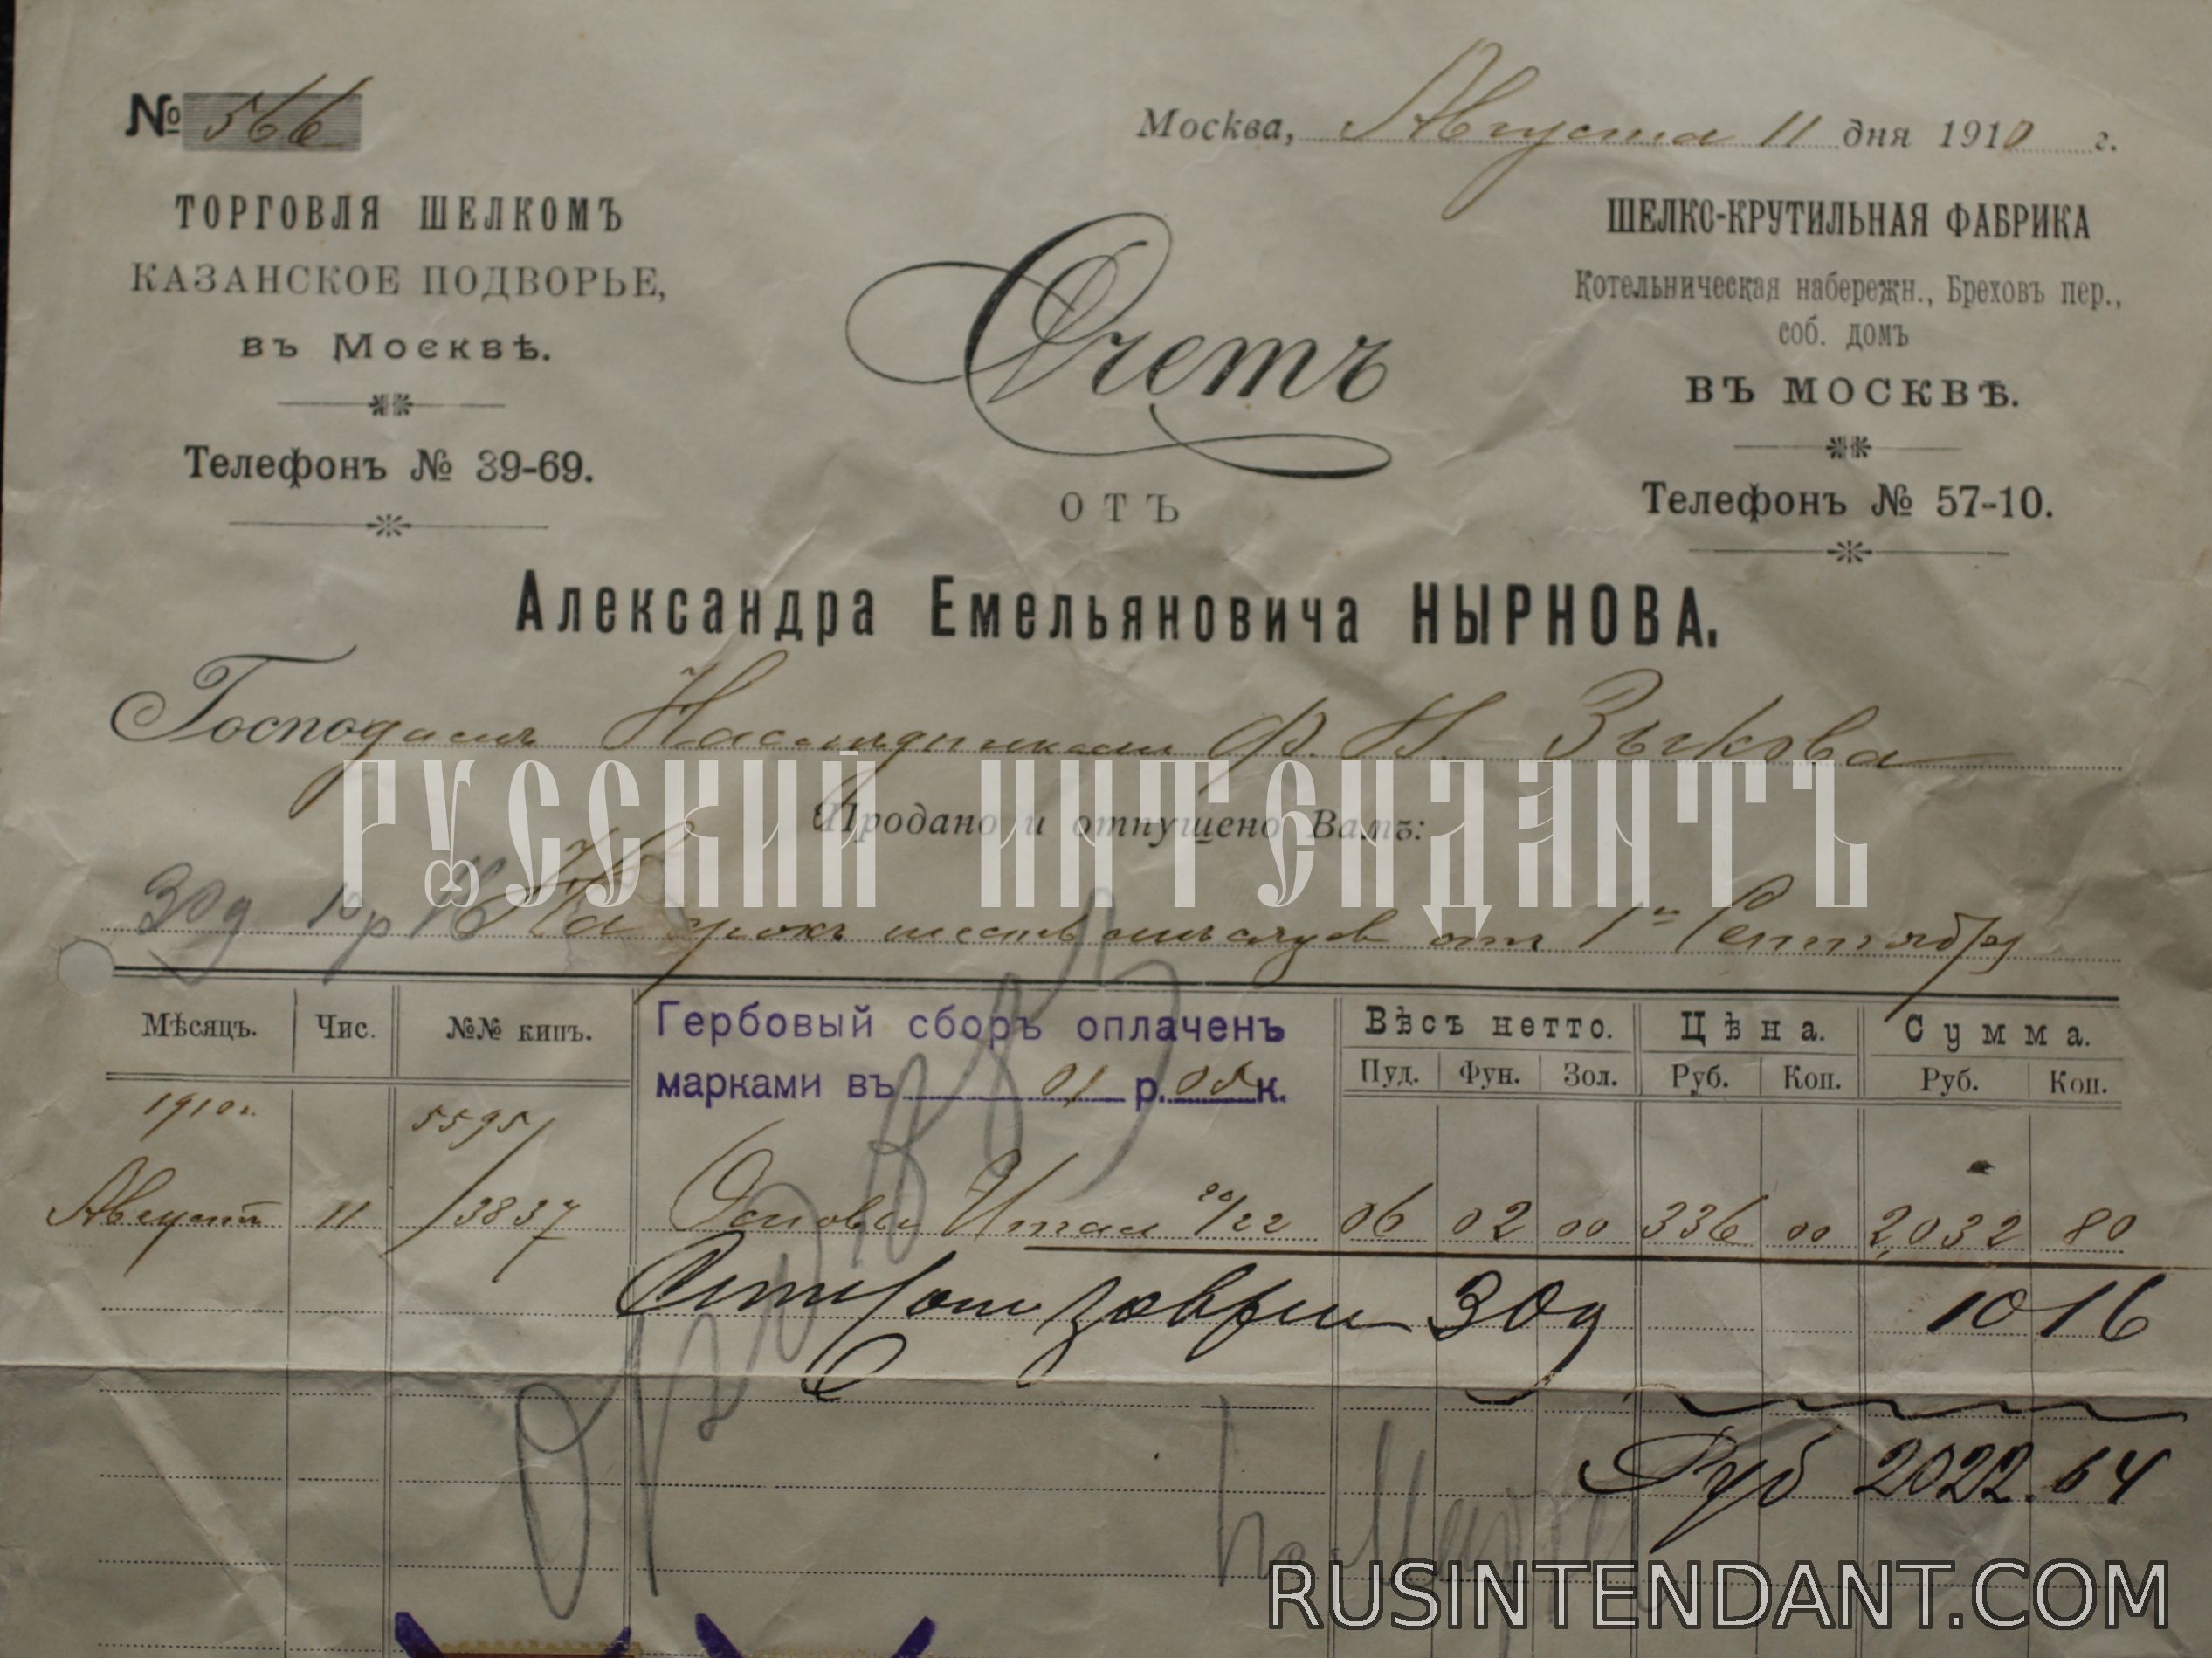 № 566
Москва, Августа 11 дня 1910 г.
ТОРГОВЛЯ ШЕЛКОМЪ
КАЗАНСКОЕ ПОДВОРЬЕ,
въ Москвѣ.
Телефонъ № 39-69.
Счетъ
ОТЪ
ШЕЛКО-КРУТИЛЬНАЯ ФАБРИКА
Котельническая набережн., Бреховъ пер.,
соб. домъ
ВЪ МОСКВѢ.
Телефонъ № 57-10.
Александра Емельяновича НЫРНОВА.
Господамъ Наслѣдникамъ Ф. Н. Зыкова
РУССКИЙ ИНТЕНДАНТЪ
Продано и отпущено Вамъ:
30д 10р 16
На срокъ шесть мѣсяцевъ отъ 1го Сентября
Мѣсяцъ. Чис. №№ кипъ. Вѣсъ нетто. Цѣна. Сумма.
Пуд. Фун. Зол. Руб. Коп. Руб. Коп.
Гербовый сборъ оплаченъ
марками въ 01 р. 05 к.
1910г. 5595/
Августъ 11 /3837 Основы Итал 20/22 06 02 00 336 00 2,032 80
30д 1016
Руб 2022.64
по
RUSINTENDANT.COM